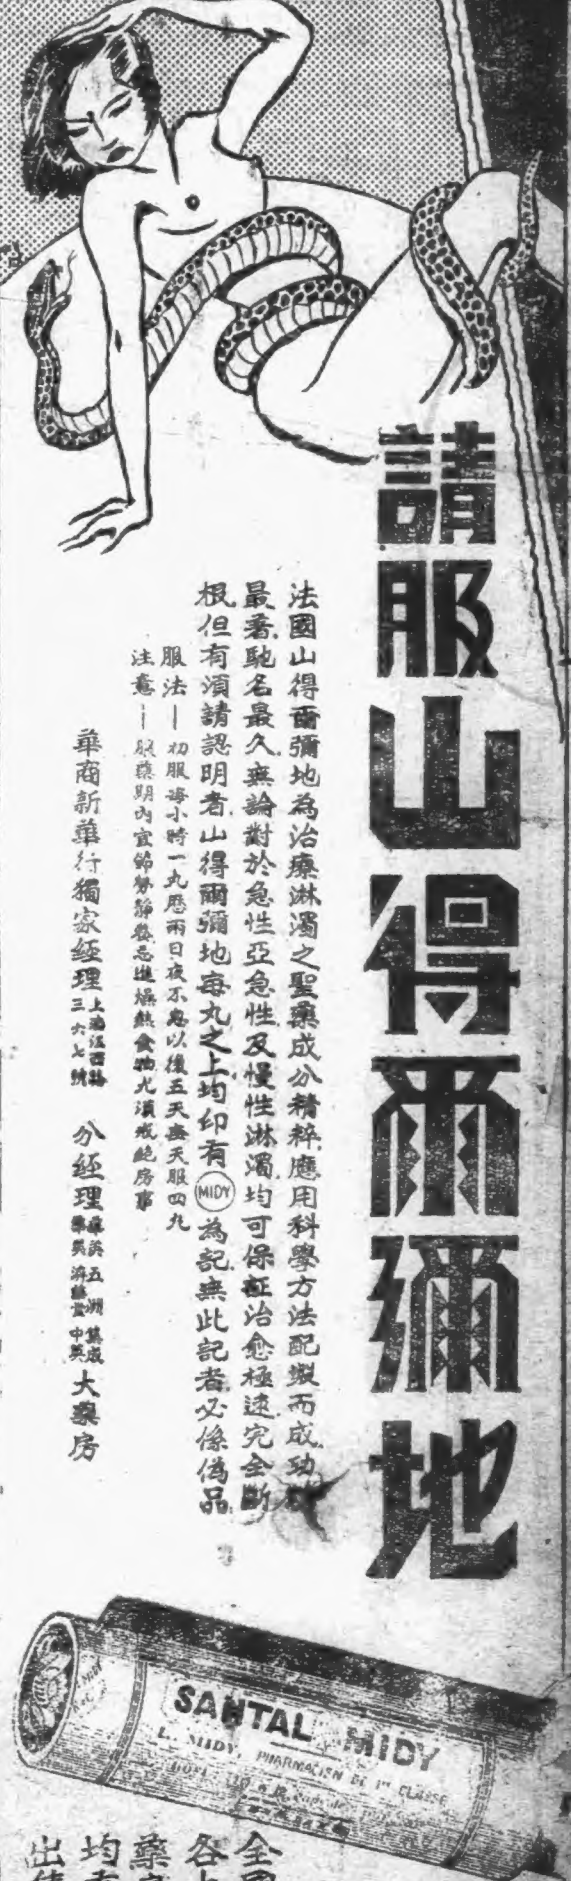 請服山得爾彌地
法國山得爾彌地為治療淋濁之聖藥成分精粹應用科學方法配製而成功
最著馳名最久無論對於急性亞急性及慢性淋濁均可保証治愈極速完全斷
根但有須請認明者山得爾彌地每丸之上均印有MIDY為記無此記者必係偽品
服法—初服每小時一丸歷兩日夜不息以後五天每天服四丸
注意—服藥期內宜節勞靜養忌進燥熱食物尤須戒絕房事
華商新華行獨家經理上海江西路三六七號 分經理華英五洲集成 中英大藥房
SANTAL MIDY
L. MIDY, PHARMACIEN DE 1re CLASSE
全
各
藥
均
出